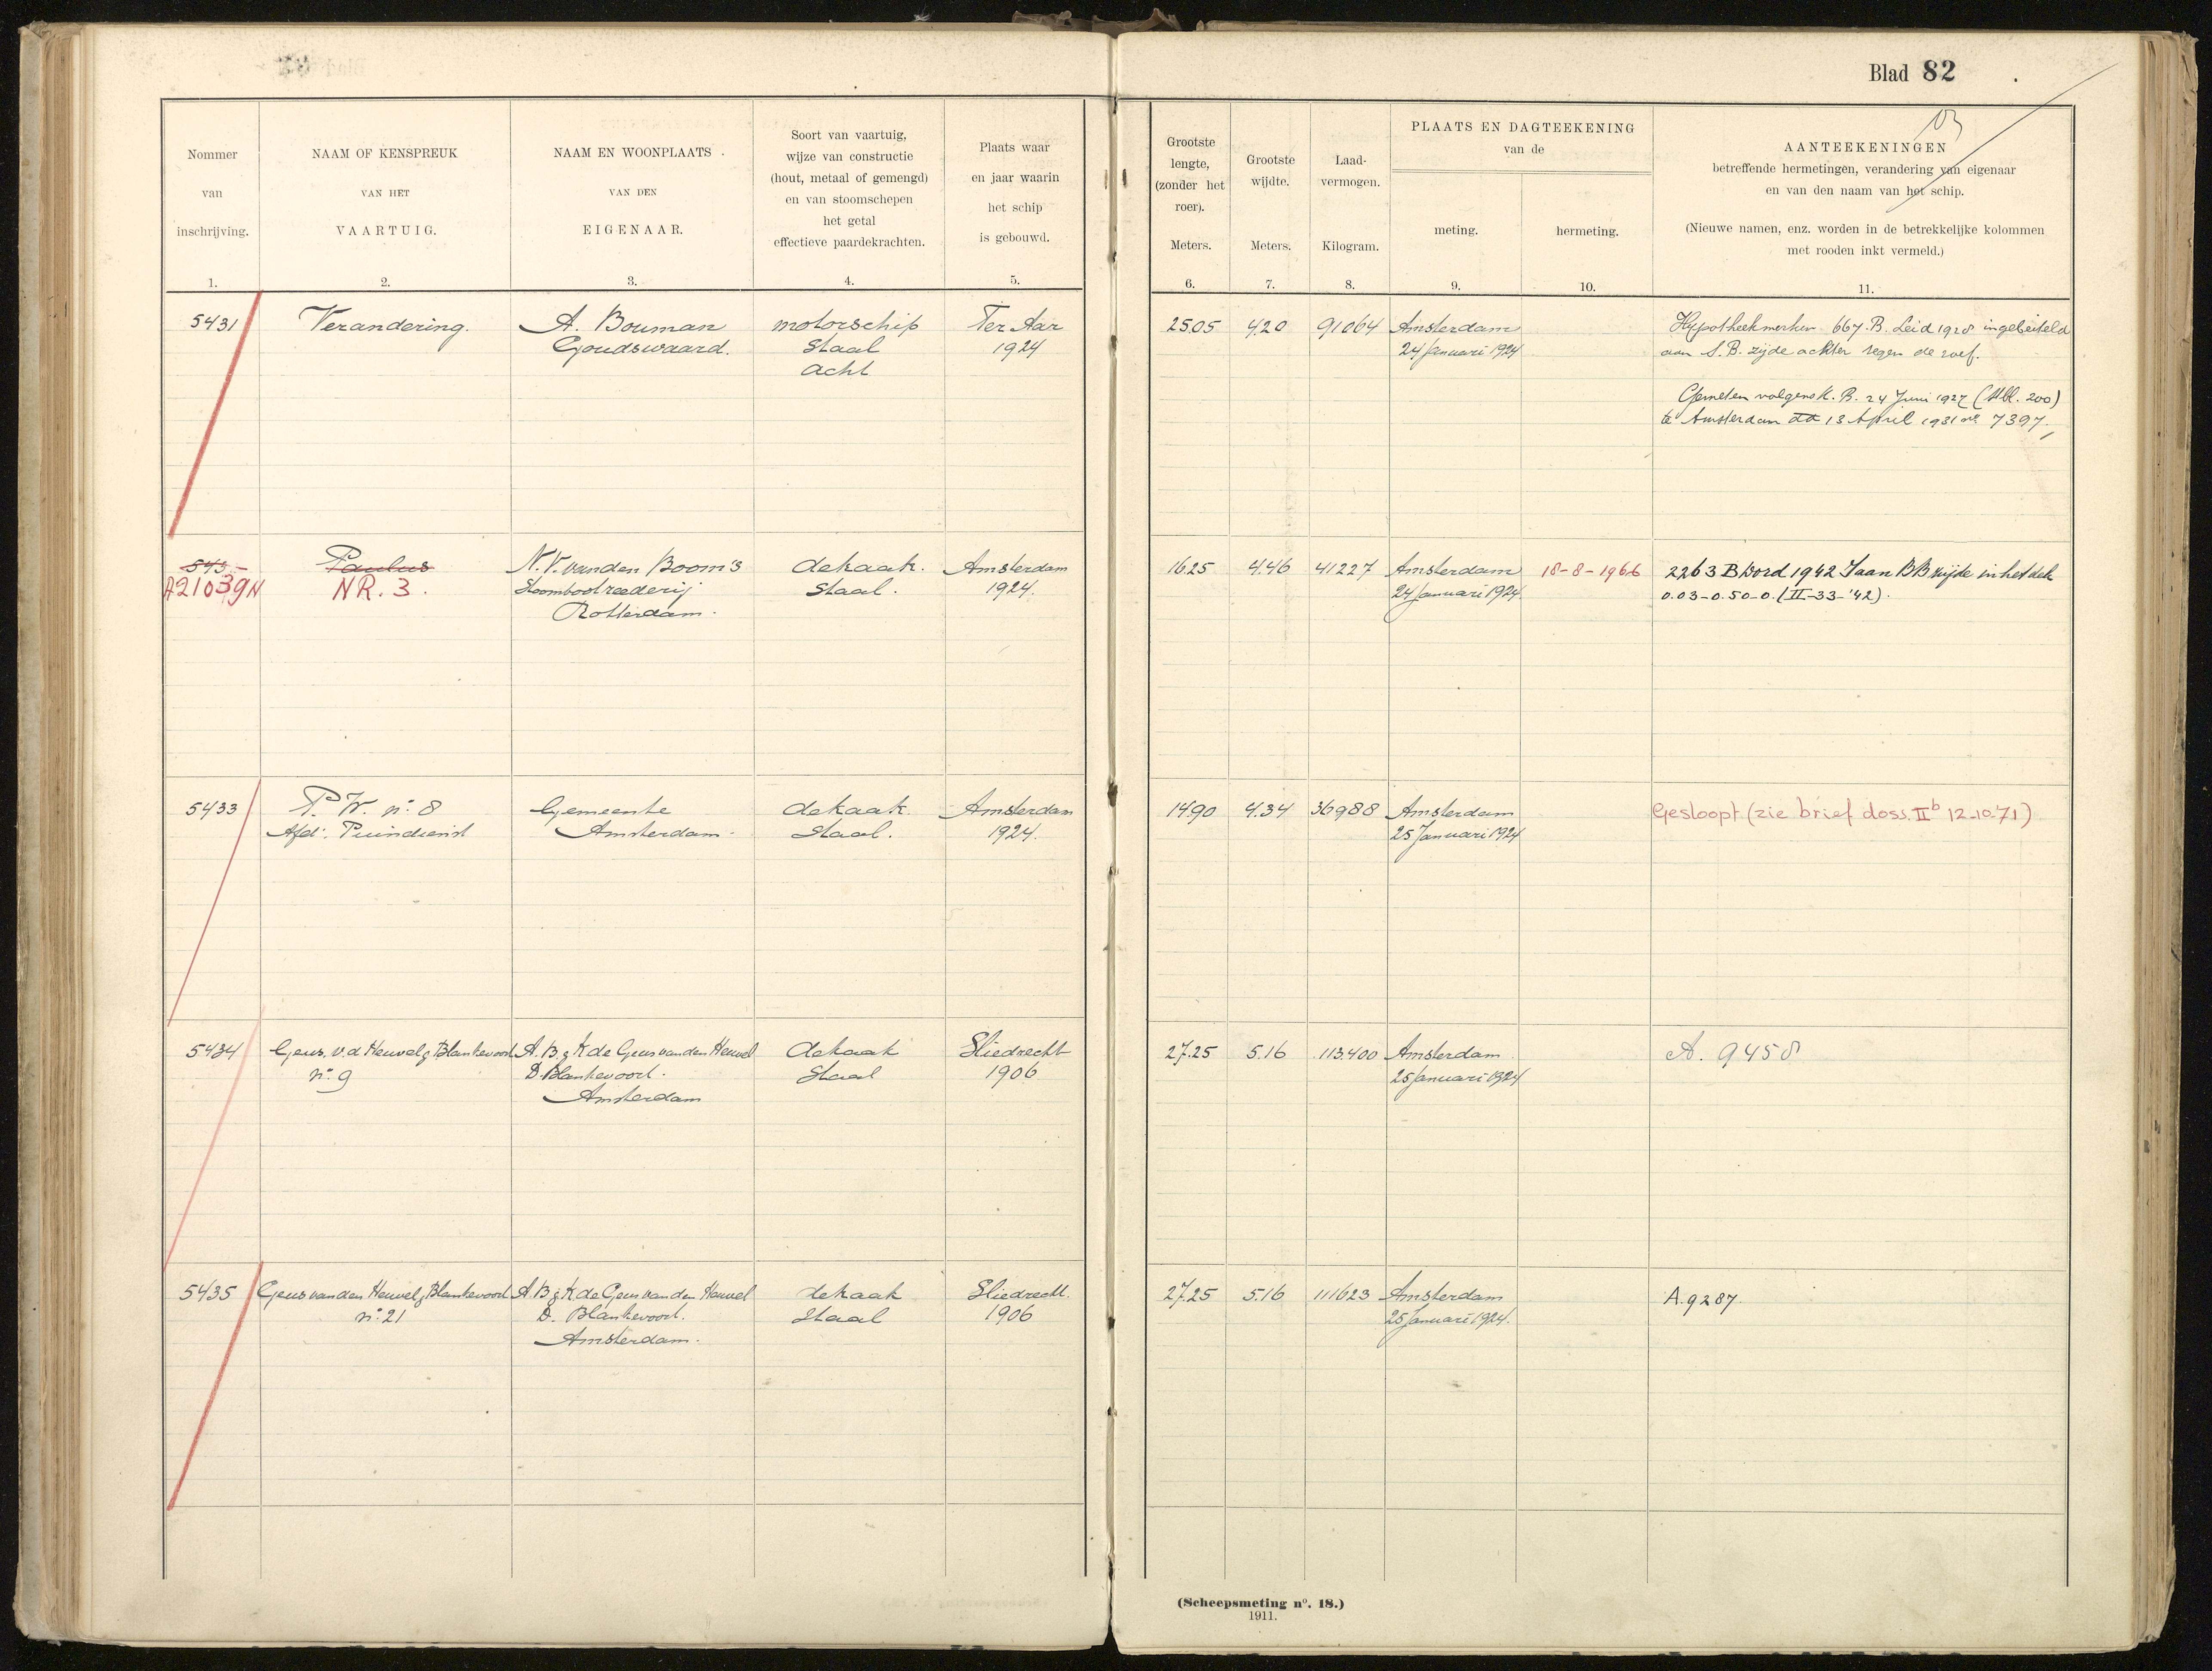 Blad 82
Nommer
van
inschrijving.
1.
NAAM OF KENSPREUK
VAN HET
VAARTUIG.
2.
NAAM EN WOONPLAATS
VAN DEN
EIGENAAR.
3.
Soort van vaartuig,
wijze van constructie
(hout, metaal of gemengd)
en van stoomschepen
het getal
effectieve paardekrachten.
4.
Plaats waar
en jaar waarin
het schip
is gebouwd.
5.
Grootste
lengte,
(zonder het
roer).
Meters.
6.
Grootste
wijdte.
Meters.
7.
Laad-
vermogen.
Kilogram.
8.
PLAATS EN DAGTEEKENING
van de
meting.
9.
hermeting.
10.
AANTEEKENINGEN
betreffende hermetingen, verandering van eigenaar
en van den naam van het schip.
(Nieuwe namen, enz. worden in de betrekkelijke kolommen
met rooden inkt vermeld.)
11.
5431
Verandering.
A. Bouman
Goudswaard.
motorschip
staal
acht
Ter Aar
1924
25.05
4.20
91064
Amsterdam
24 Januari 1924
Hypotheekmerken 667.B. Leid 1928 ingebeiteld
aan S.B. zijde achter tegen de roef.
Gemeten volgens K.B. 24 Juni 1927 (Stbl. 200)
te Amsterdam dd 13 April 1931 no 7397.
543
A21039N
Paulus
NR. 3.
N.V. van den Boom's
Stoombootreederij
Rotterdam.
dekaak.
Staal.
Amsterdam
1924.
16.25
4.46
41227
Amsterdam
24 Januari 1924.
18-8-1966
2263 B Dord 1942 Iaan BB zijde in het dek
0.03-0.50-0. (II-33-'42).
5433
P.W. no. 8
Afd: Puindienst
Gemeente
Amsterdam.
dekaak.
Staal.
Amsterdam
1924.
14.90
4.34
36988
Amsterdam
25 Januari 1924
Gesloopt (zie brief doss. IIb 12-10-71)
5434
Geus. v.d. Heuvel & Blankevoort
no. 9
A.B. & K de Geus van den Heuvel
D. Blankevoort.
Amsterdam
dekaak
Staal
Sliedrecht
1906
27.25
5.16
113.400
Amsterdam
25 Januari 1924
A. 9458
5435
Geus van den Heuvel & Blankevoort
no. 21
A.B & K de Geus van den Heuvel
D. Blankevoort.
Amsterdam.
dekaak
Staal
Sliedrecht.
1906
27.25
5.16
111623
Amsterdam
25 Januari 1924.
A.9287.
(Scheepsmeting no. 18.)
1911.